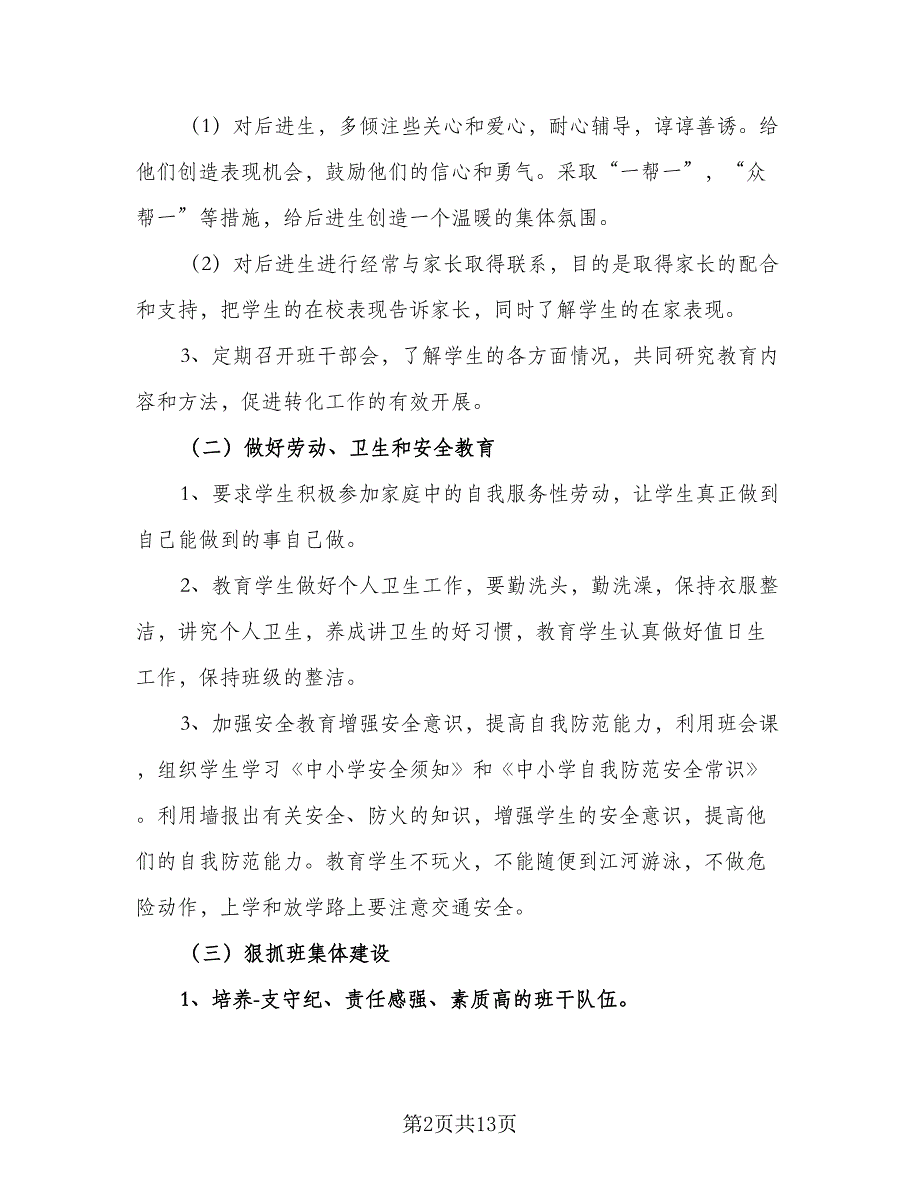 （1）对后进生，多倾注些关心和爱心，耐心辅导，谆谆善诱。给
他们创造表现机会，鼓励他们的信心和勇气。采取“一帮一”，“众
帮一”等措施，给后进生创造一个温暖的集体氛围。
（2）对后进生进行经常与家长取得联系，目的是取得家长的配合
和支持，把学生的在校表现告诉家长，同时了解学生的在家表现。
3、定期召开班干部会，了解学生的各方面情况，共同研究教育内
容和方法，促进转化工作的有效开展。
（二）做好劳动、卫生和安全教育
1、要求学生积极参加家庭中的自我服务性劳动，让学生真正做到
自己能做到的事自己做。
2、教育学生做好个人卫生工作，要勤洗头，勤洗澡，保持衣服整
洁，讲究个人卫生，养成讲卫生的好习惯，教育学生认真做好值日生
工作，保持班级的整洁。
3、加强安全教育增强安全意识，提高自我防范能力，利用班会课
，组织学生学习《中小学安全须知》和《中小学自我防范安全常识》
。利用墙报出有关安全、防火的知识，增强学生的安全意识，提高他
们的自我防范能力。教育学生不玩火，不能随便到江河游泳，不做危
险动作，上学和放学路上要注意交通安全。
（三）狠抓班集体建设
1、培养-支守纪、责任感强、素质高的班干队伍。
第2页共13页